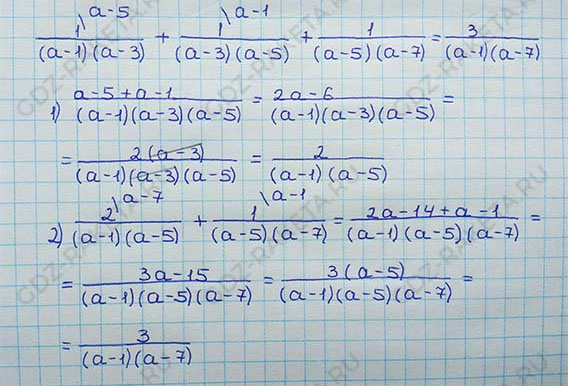 \a-5 \a-1
1/((a-1)(a-3)) + 1/((a-3)(a-5)) + 1/((a-5)(a-7)) = 3/((a-1)(a-7))
1) (a-5+a-1)/((a-1)(a-3)(a-5)) = (2a-6)/((a-1)(a-3)(a-5)) =
= 2(a-3)/((a-1)(a-3)(a-5)) = 2/((a-1)(a-5))
\a-7 \a-1
2) 2/((a-1)(a-5)) + 1/((a-5)(a-7)) = (2a-14+a-1)/((a-1)(a-5)(a-7)) =
= (3a-15)/((a-1)(a-5)(a-7)) = 3(a-5)/((a-1)(a-5)(a-7)) =
= 3/((a-1)(a-7))
GDZ-RAKETA.RU